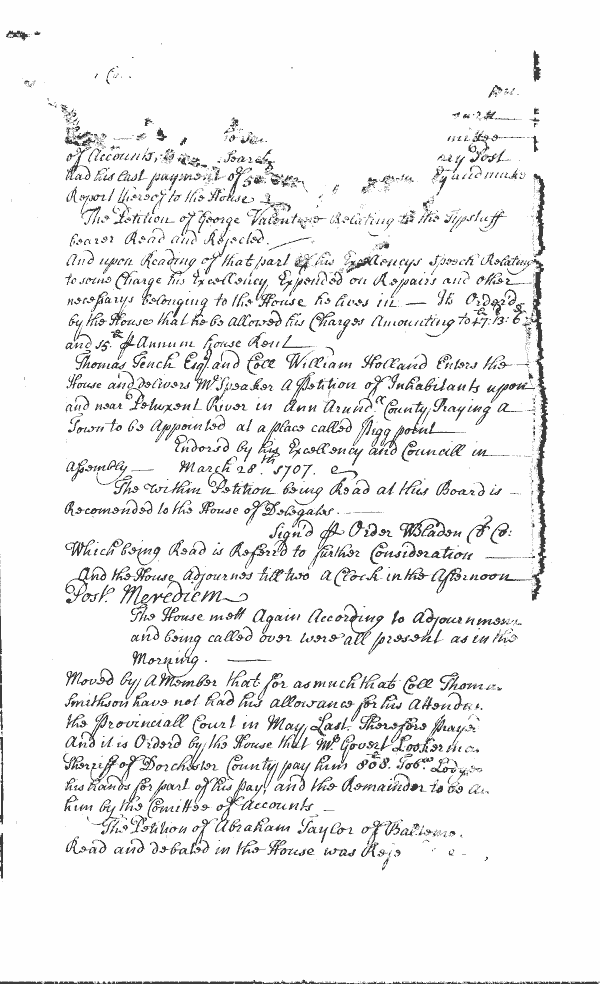 of Accounts,
had his last payment of
Report thereof to the House.
The Petition of George Valentine Relating to the Tipstaff
bearer Read and Rejected.
And upon Reading of that part of his Excellencys Speech Relating
to some Charge his Excellency Expended on Repairs and other
necessarys belonging to the House he lives in — It Orderd
by the House that he be allowed his Charges Amounting to 47:13:6
and 15 ⅌ Annum house Rent
Thomas Tench Esqr. and Coll William Holland Enters the
House and delivers Mr Speaker A Petition of Inhabitants upon
and near Petuxent River in Ann Arundll County Praying a
Town to be Appointed at a place called Pigg point
Endorsd by his Excellency and Councill in
Assembly — March 28th. 1707.
The within Petition being Read at this Board is
Recomended to the House of Delegates.
Sign'd ⅌ Order WBladen Cl Co:
Which being Read is Referrd to further Consideration
And the House Adjournes till two a Clock in the Afternoon
Post Merediem
The House mett Again According to Adjournment
and being called over were all present as in the
Morning.
Moved by A Member that for asmuch that Coll Thomas
Smithson have not had his allowance for his Attendan
the Provinciall Court in May Last. Therefore Prayes
And it is Orderd by the House that Mr Govert Lookerma
Sherriff of Dorchester County pay him 808. Tobco Lodge
his hands for part of his Pay, and the Remainder to be
him by the Comittee of Accounts
The Petition of Abraham Taylor of Baltemo
Read and debated in the House was Reje